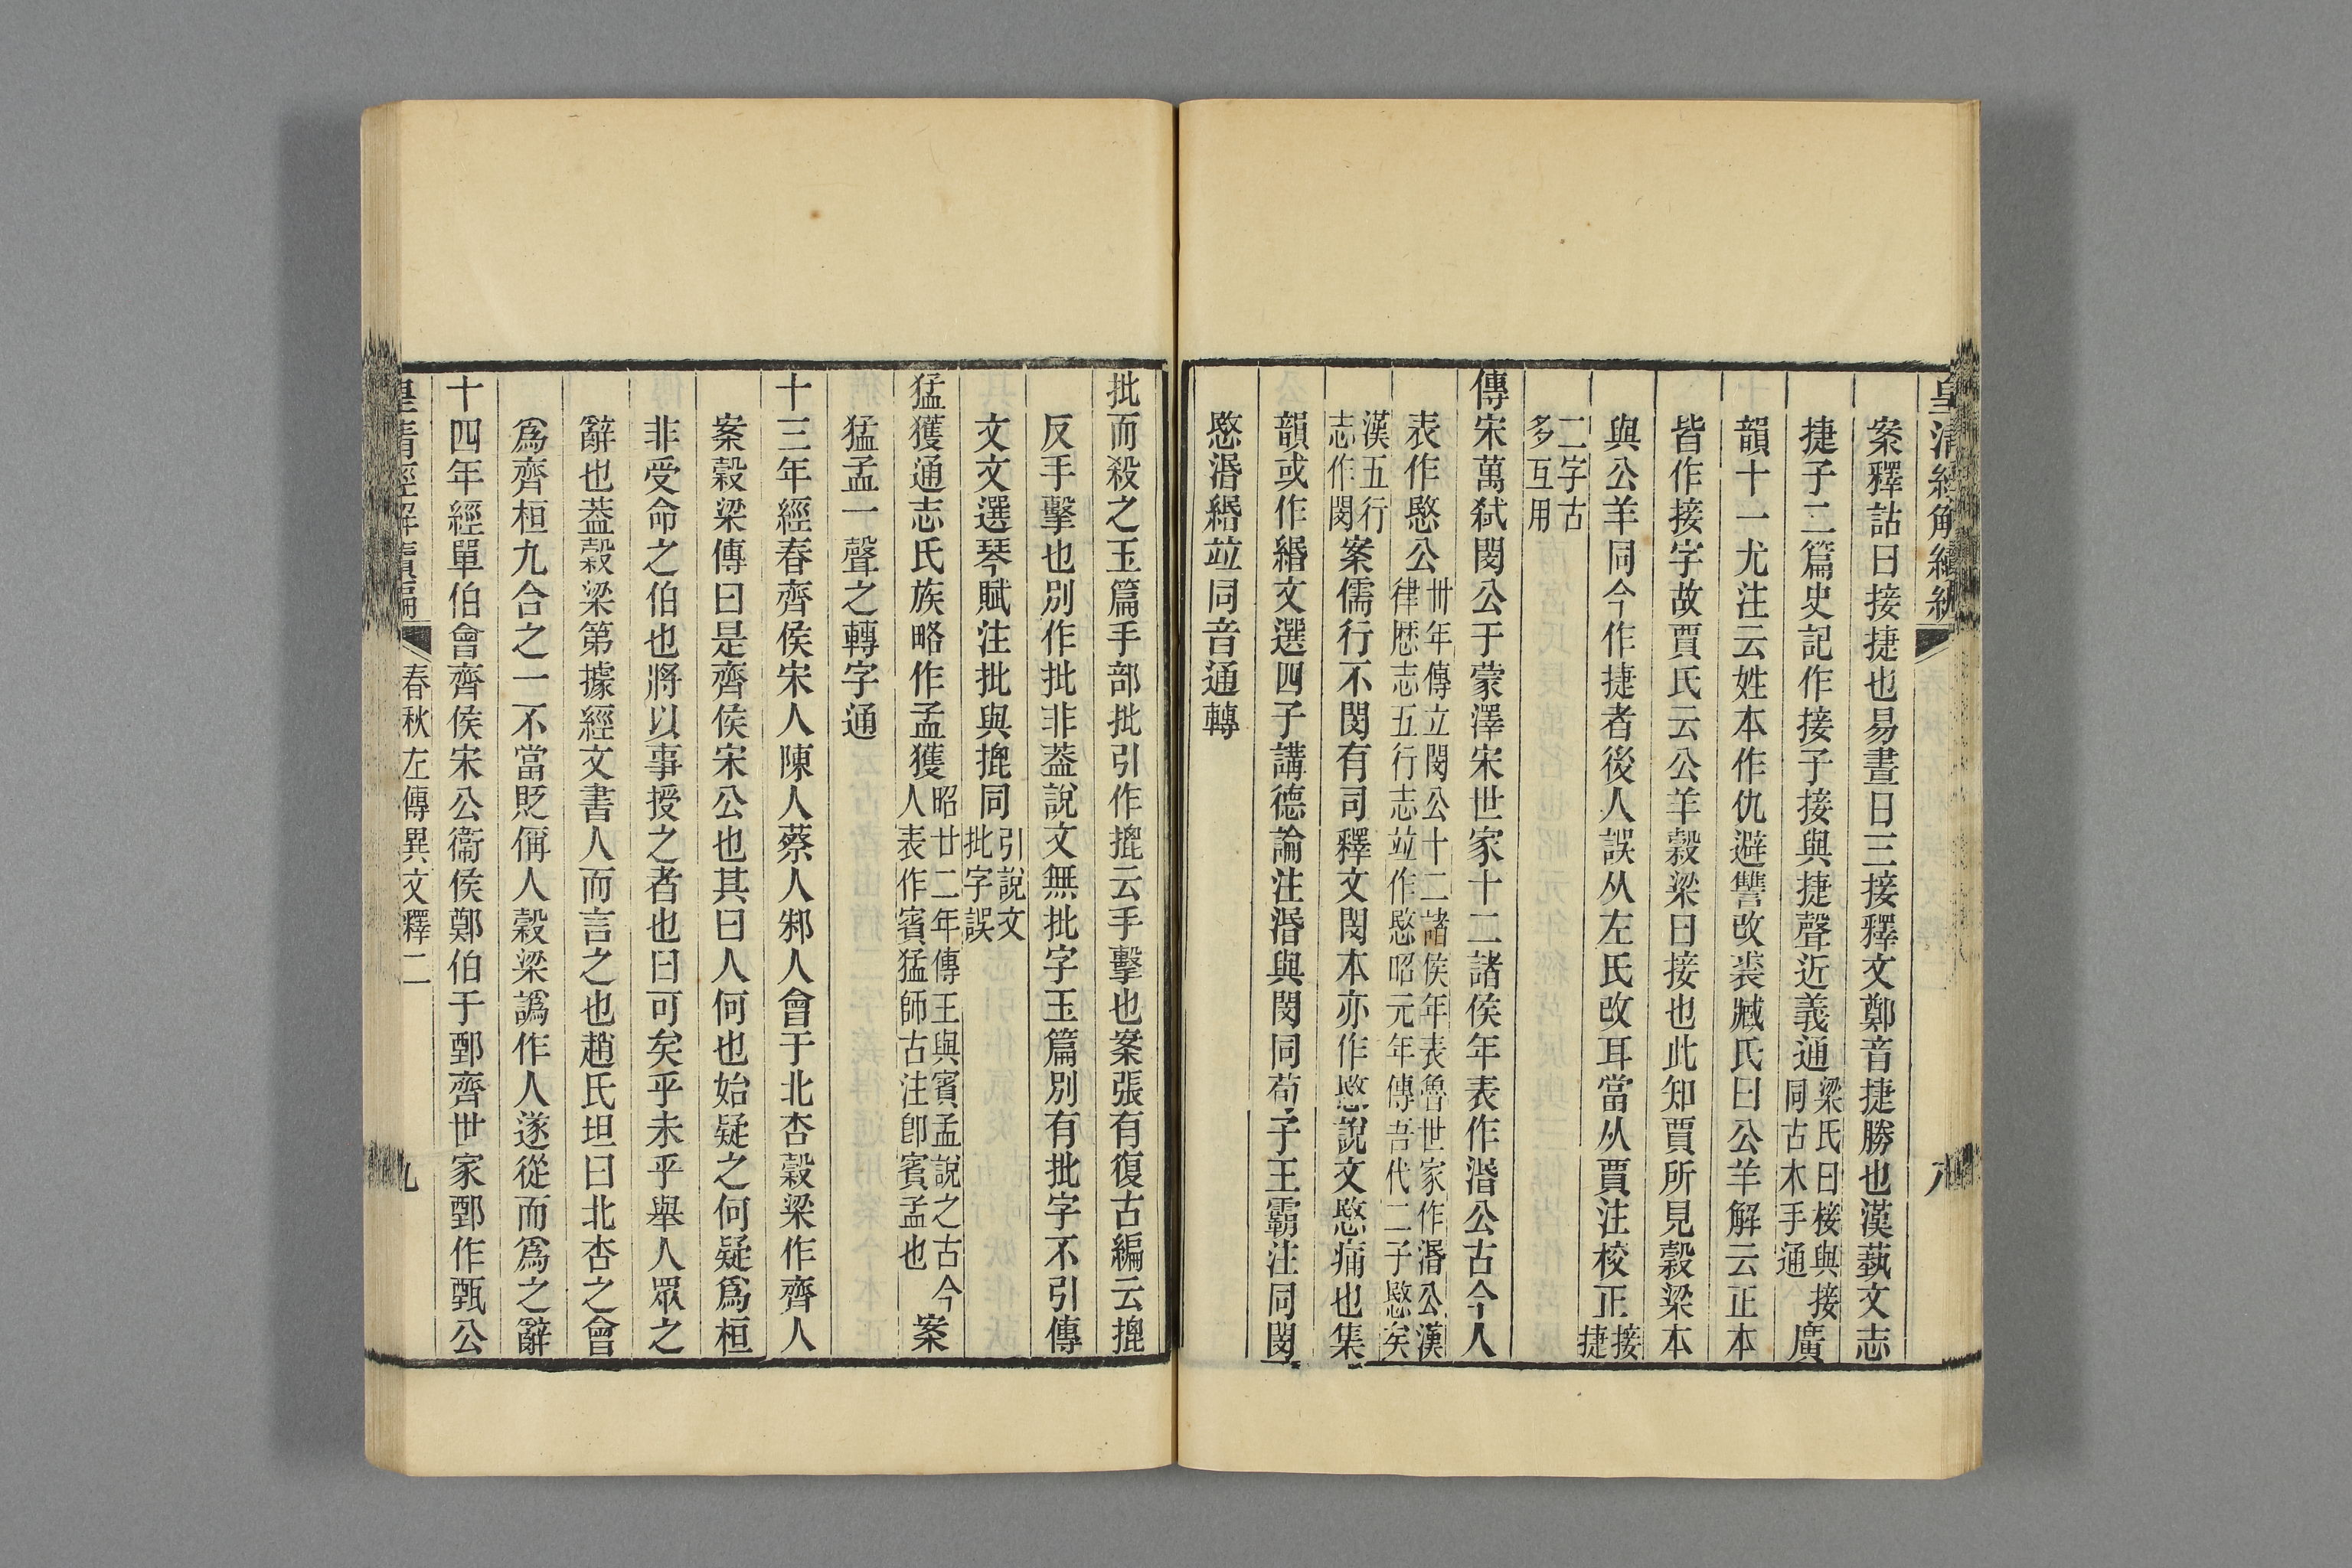 皇清經解續編
八
案釋詁曰接捷也易晝日三接釋文鄭音捷勝也漢藝文志
捷子二篇史記作接子接與捷聲近義通梁氏曰椄與接同古木手通廣
韻十一尤注云姓本作仇避讐改裘臧氏曰公羊解云正本
皆作接字故賈氏云公羊穀梁曰接也此知賈所見穀梁本
與公羊同今作捷者後人誤从左氏改耳當从賈注校正接捷
二字古多互用
傳宋萬弑閔公于蒙澤宋世家十二諸侯年表作湣公古今人
表作愍公卅年傳立閔公十二諸侯年表魯世家作湣公漢律厯志五行志竝作愍昭元年傳吾代二子愍矣
漢五行志作閔案儒行不閔有司釋文閔本亦作愍說文愍痛也集
韻或作緡文選四子講德論注湣與閔同荀子王霸注同閔
愍湣緡竝同音通轉
批而殺之玉篇手部批引作㧗云手擊也案張有復古編云㧗
反手擊也別作批非葢說文無批字玉篇別有批字不引傳
文文選琴賦注批與㧗同引說文批字誤
猛獲通志氏族略作孟獲昭廿二年傳王與賓孟說之古今人表作賓猛師古注卽賓孟也案
猛孟一聲之轉字通
十三年經春齊侯宋人陳人蔡人邾人會于北杏穀梁作齊人
案穀梁傳曰是齊侯宋公也其曰人何也始疑之何疑焉桓
非受命之伯也將以事授之者也曰可矣乎未乎舉人眾之
辭也葢穀梁第據經文書人而言之也趙氏坦曰北杏之會
爲齊桓九合之一不當貶偁人穀梁譌作人遂從而爲之辭
十四年經單伯會齊侯宋公衞侯鄭伯于鄄齊世家鄄作甄公
皇清經解續編
春秋左傳異文釋二
九